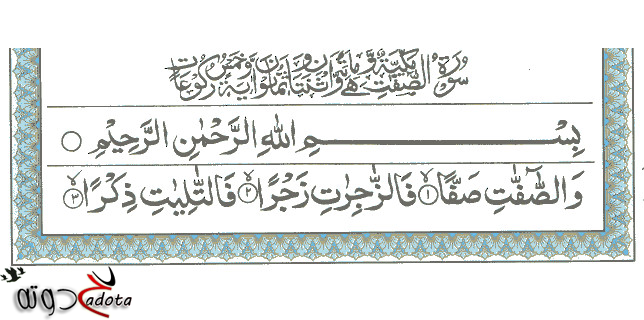 سُوْرَةُ الصّٰفّٰتِ مَكِّيَّةٌ وَّهِيَ مِائَةٌ وَّاثْنَتَانِ وَثَمَانُوْنَ اٰيَةً وَّخَمْسُ رُكُوْعَاتٍ
بِسْــــــــمِ اللّٰهِ الرَّحْمٰنِ الرَّحِيْمِ
وَالصّٰٓفّٰتِ صَفًّا ۙ﴿۱﴾ فَالزّٰجِرٰتِ زَجْرًا ۙ﴿۲﴾ فَالتّٰلِيٰتِ ذِكْرًا ۙ﴿۳﴾
حدوته adota